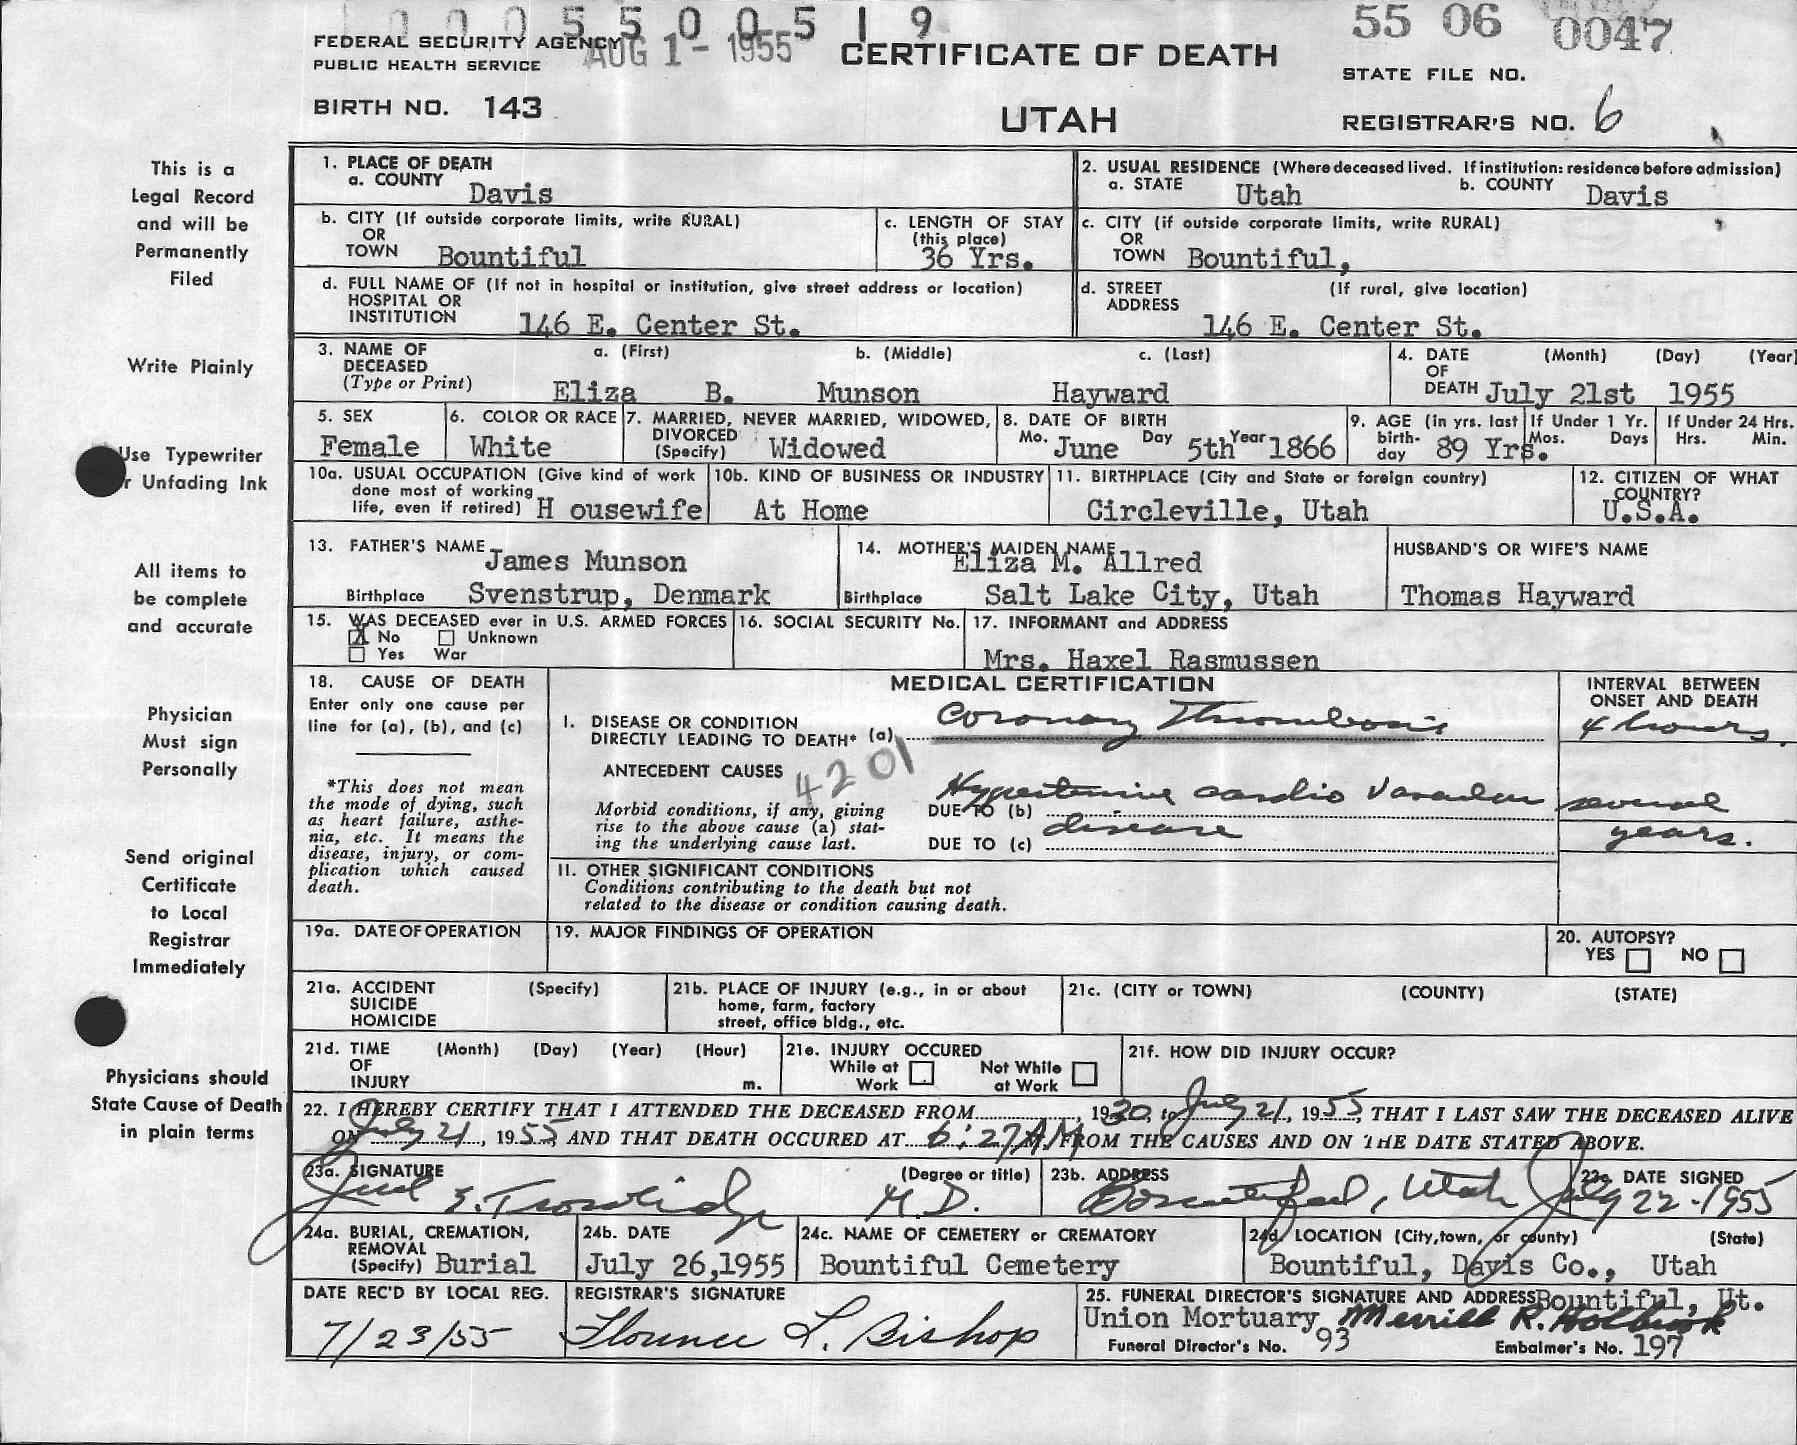 0 0 0 5 5 0 0 5 1 9
55 06 0047
FEDERAL SECURITY AGENCY
PUBLIC HEALTH SERVICE
AUG 1 - 1955
CERTIFICATE OF DEATH
STATE FILE NO.
BIRTH NO. 143
UTAH
REGISTRAR'S NO. 6
This is a
Legal Record
and will be
Permanently
Filed
Write Plainly
Use Typewriter
r Unfading Ink
All items to
be complete
and accurate
Physician
Must sign
Personally
Send original
Certificate
to Local
Registrar
Immediately
Physicians should
State Cause of Death
in plain terms
1. PLACE OF DEATH
a. COUNTY Davis
2. USUAL RESIDENCE (Where deceased lived. If institution: residence before admission)
a. STATE Utah b. COUNTY Davis
b. CITY (If outside corporate limits, write RURAL)
OR
TOWN Bountiful
c. LENGTH OF STAY
(this place)
36 Yrs.
c. CITY (if outside corporate limits, write RURAL)
OR
TOWN Bountiful,
d. FULL NAME OF (If not in hospital or institution, give street address or location)
HOSPITAL OR
INSTITUTION 146 E. Center St.
d. STREET (If rural, give location)
ADDRESS
146 E. Center St.
3. NAME OF a. (First) b. (Middle) c. (Last)
DECEASED
(Type or Print) Eliza B. Munson Hayward
4. DATE (Month) (Day) (Year)
OF
DEATH July 21st 1955
5. SEX
Female
6. COLOR OR RACE
White
7. MARRIED, NEVER MARRIED, WIDOWED,
DIVORCED
(Specify) Widowed
8. DATE OF BIRTH
Mo. June Day 5th Year 1866
9. AGE (in yrs. last
birth-
day 89 Yrs.
If Under 1 Yr.
Mos. Days
If Under 24 Hrs.
Hrs. Min.
10a. USUAL OCCUPATION (Give kind of work
done most of working
life, even if retired) H ousewife
10b. KIND OF BUSINESS OR INDUSTRY
At Home
11. BIRTHPLACE (City and State or foreign country)
Circleville, Utah
12. CITIZEN OF WHAT
COUNTRY?
U.S.A.
13. FATHER'S NAME James Munson
Birthplace Svenstrup, Denmark
14. MOTHER'S MAIDEN NAME
Eliza M. Allred
Birthplace Salt Lake City, Utah
HUSBAND'S OR WIFE'S NAME
Thomas Hayward
15. WAS DECEASED ever in U.S. ARMED FORCES
X No Unknown
Yes War
16. SOCIAL SECURITY No.
17. INFORMANT and ADDRESS
Mrs. Haxel Rasmussen
18. CAUSE OF DEATH
Enter only one cause per
line for (a), (b), and (c)
*This does not mean
the mode of dying, such
as heart failure, asthe-
nia, etc. It means the
disease, injury, or com-
plication which caused
death.
MEDICAL CERTIFICATION
I. DISEASE OR CONDITION
DIRECTLY LEADING TO DEATH* (a) Coronary Thrombosis
ANTECEDENT CAUSES
4201
Morbid conditions, if any, giving
rise to the above cause (a) stat-
ing the underlying cause last.
DUE TO (b) Hypertensive cardio vascular
disease
DUE TO (c)
INTERVAL BETWEEN
ONSET AND DEATH
4 hours.
several
years.
11. OTHER SIGNIFICANT CONDITIONS
Conditions contributing to the death but not
related to the disease or condition causing death.
19a. DATE OF OPERATION
19. MAJOR FINDINGS OF OPERATION
20. AUTOPSY?
YES NO
21a. ACCIDENT (Specify)
SUICIDE
HOMICIDE
21b. PLACE OF INJURY (e.g., in or about
home, farm, factory
street, office bldg., etc.
21c. (CITY or TOWN) (COUNTY) (STATE)
21d. TIME (Month) (Day) (Year) (Hour)
OF
INJURY m.
21e. INJURY OCCURED
While at Work Not While at Work
21f. HOW DID INJURY OCCUR?
22. I HEREBY CERTIFY THAT I ATTENDED THE DECEASED FROM , 1930, to July 21, 1955, THAT I LAST SAW THE DECEASED ALIVE
ON July 21, 1955 AND THAT DEATH OCCURED AT 6:27 A.M. FROM THE CAUSES AND ON THE DATE STATED ABOVE.
23a. SIGNATURE (Degree or title)
E. Trowbridge M.D.
23b. ADDRESS
Bountiful, Utah
22c DATE SIGNED
July 22-1955
24a. BURIAL, CREMATION,
REMOVAL
(Specify) Burial
24b. DATE
July 26,1955
24c. NAME OF CEMETERY or CREMATORY
Bountiful Cemetery
24d. LOCATION (City, town, or county) (State)
Bountiful, Davis Co., Utah
DATE REC'D BY LOCAL REG.
7/23/55
REGISTRAR'S SIGNATURE
Florence L. Bishop
25. FUNERAL DIRECTOR'S SIGNATURE AND ADDRESS Bountiful, Ut.
Union Mortuary Merrill R. Holbrook
Funeral Director's No. 93 Embalmer's No. 197